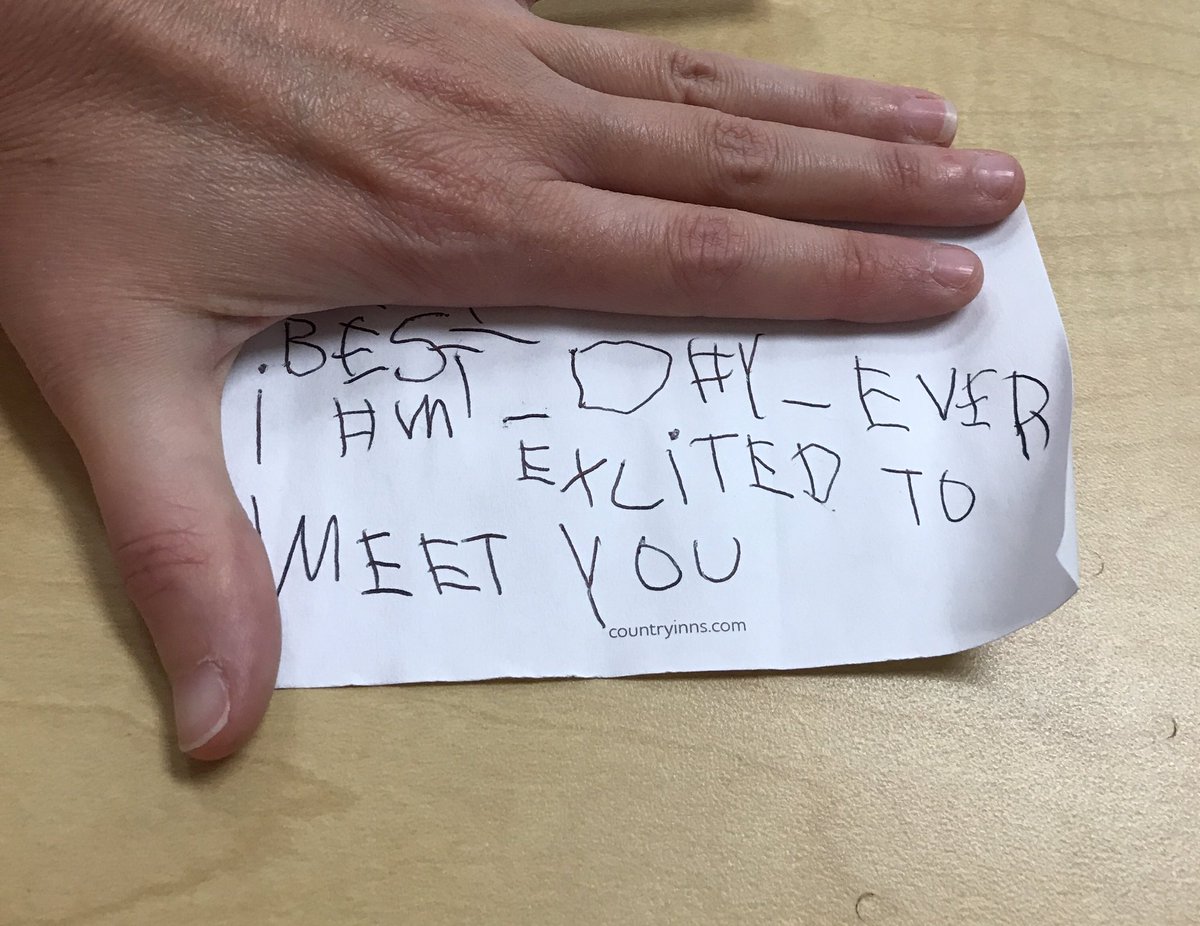 BEST_DAY_EVER
i AM EXCiTED TO
MEET YOU
countryinns.com